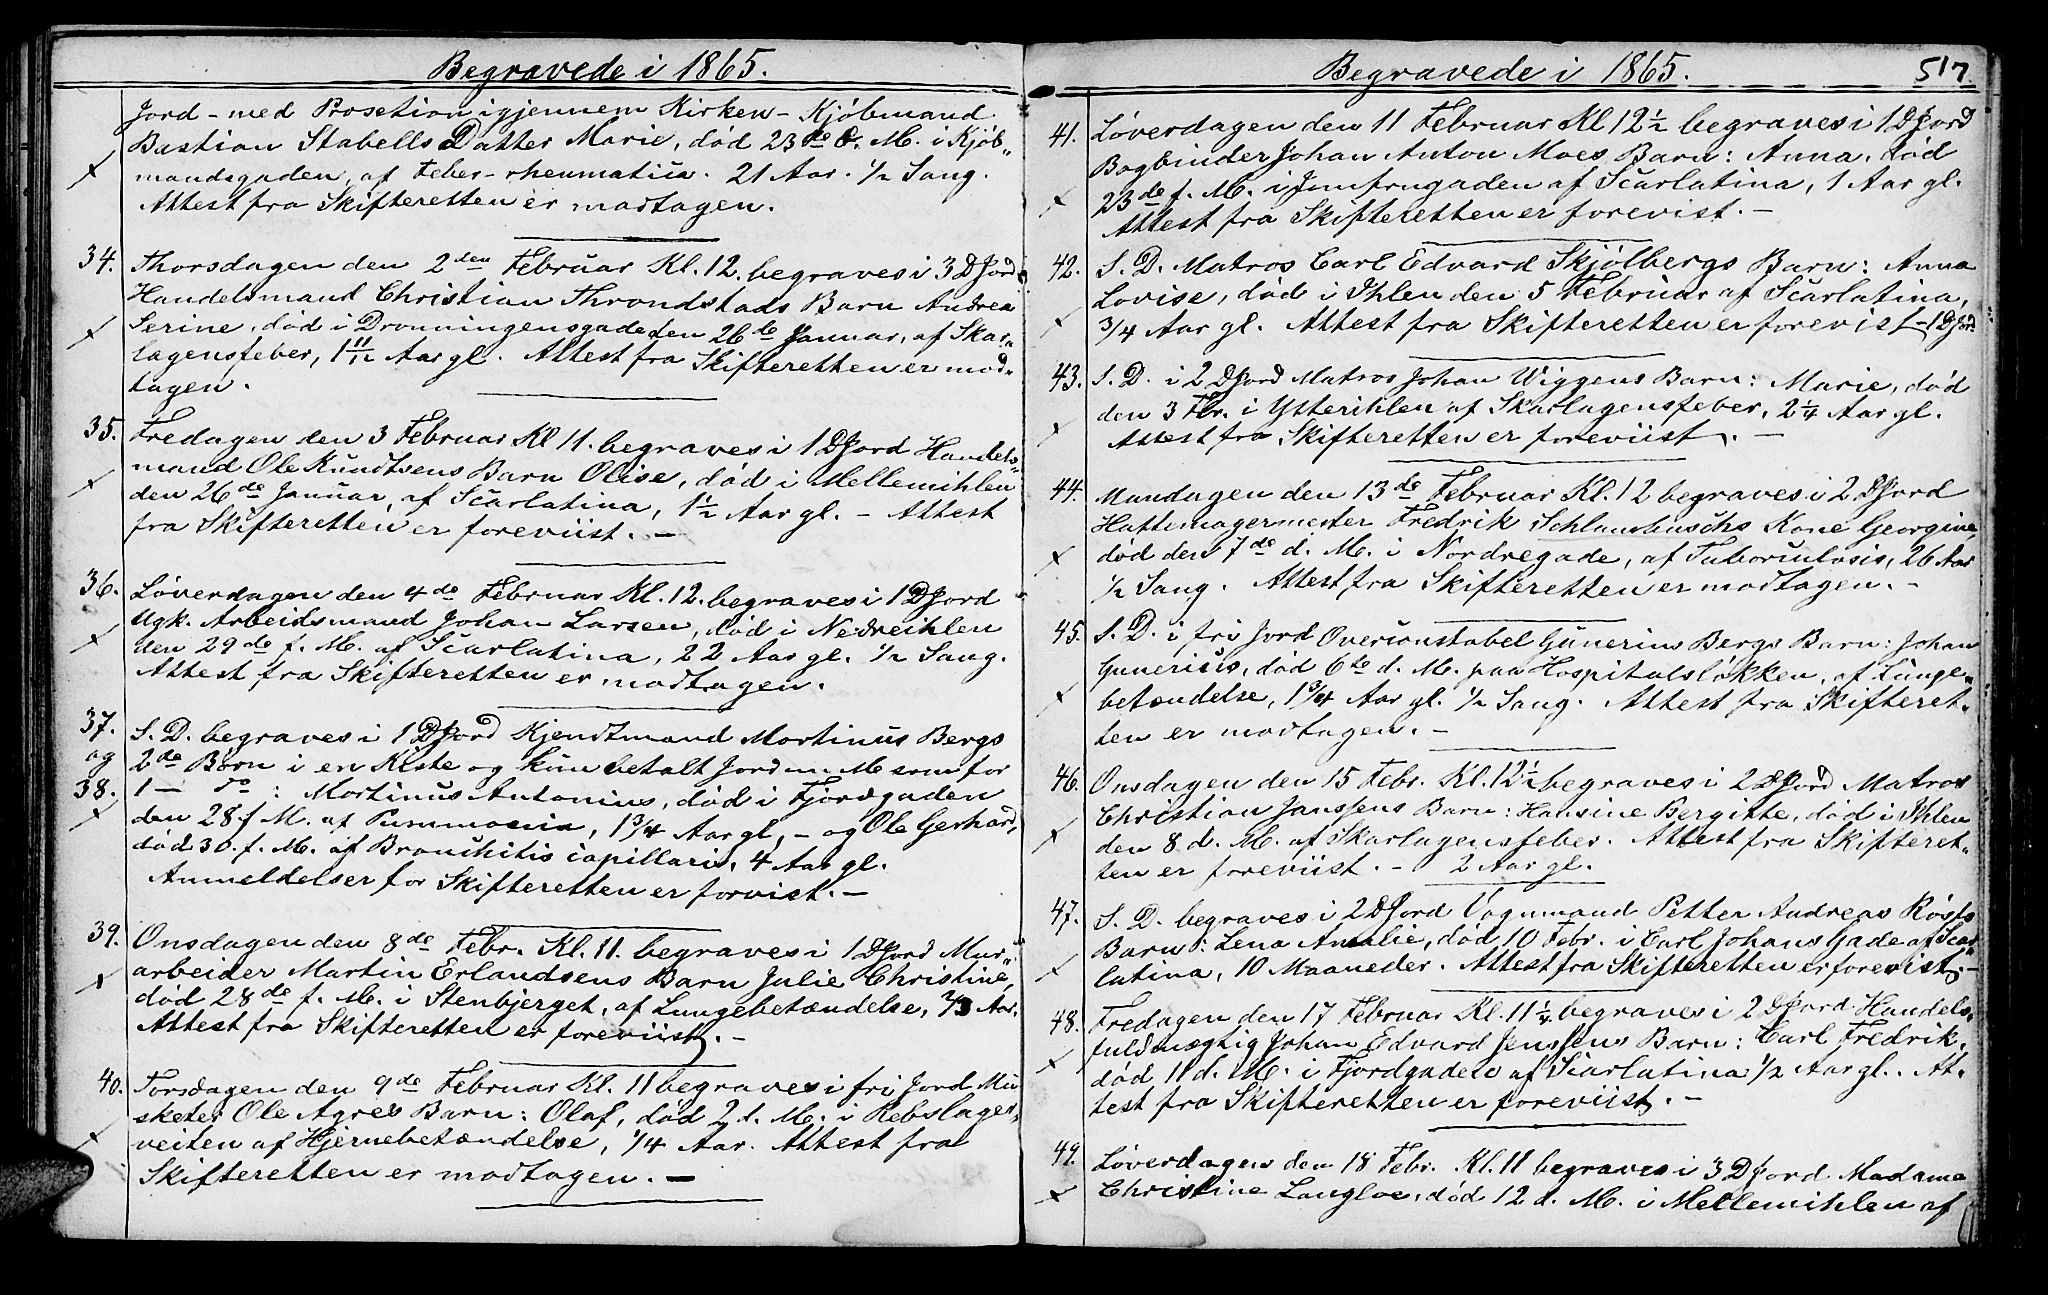 Begravede i 1865.
Jord - med Prosetion igjennem Kirken - Kjöbmand
Bastian Stabells Datter Marie, död 23de d. M. i Kjöb-
mandsgaden, af Feber-rheumatica. 21 Aar. 1/2 Sang.
Attest fra Skifteretten er modtagen.
34. Thorsdagen den 2den Februar Kl. 12. begraves i 3 D Jord
Handelsmand Christian Throndstads Barn Andrea
Serine, död i Dronningensgade den 26de Januar, af Skar-
lagensfeber, 1 11/12 Aar gl. Attest fra Skifteretten er mod-
tagen.
35. Fredagen den 3 Februar Kl 11. begraves i 1 D Jord Handels-
mand Ole Knudtsens Barn Olise, död i Mellemihlen
den 26de Januar, af Scarlatina, 1 1/2 Aar gl. - Attest
fra Skifteretten er foreviist. -
36. Löverdagen den 4de Februar Kl. 12. begraves i 1 D Jord
Ugk. Arbeidsmand Johan Larsen, död i Nedreihlen
den 29de f. M. af Scarlatina, 22 Aar gl. 1/2 Sang.
Attest fra Skifteretten er modtagen.
37. S. D. begraves i 1 D Jord Kjendtmand Martinus Bergs
og 2de Börn i en Kiste og kun betalt Jorden M som for
38. 1 - do : Martinus Antonius, död i Fjordgaden
den 28 f M. af Pummonia, 1 3/4 Aar gl, - og Ole Gerhard,
död 30. f. M. af Bronchitis capillaris, 4 Aar gl.
Anmeldelser for Skifteretten er forvist. -
39. Onsdagen den 8de Febr. Kl. 11. begraves i 1 D Jord Mur-
arbeider Martin Erlandsens Barn Julie Christine,
död 28de f. M. i Stenbjerget, af Lungebetændelse, 2/3 Aar.
Attest fra Skifteretten er foreviist. -
40. Torsdagen den 9de Februar Kl. 11 begraves i fri Jord Mu
sketer Ole Agres Barn: Olaf, död 2 d. M. i Rebslager-
veiten af Hjernebetændelse, 1/4 Aar. Attest fra
Skifteretten er modtagen. -
Begravede i 1865. 517.
41. Löverdagen den 11 Februar Kl 12 1/2 begraves i 1 D Jord
Bogbinder Johan Anton Moes Barn: Anna, död
23de f. M. i Jomfrugaden af Scarlatina, 1 Aar gl.
Attest fra Skifteretten er forevist. -
42. S. D. Matros Carl Edvard Skjölbergs Barn: Anna
Lovise, död i Ihlen den 5 Februar af Scarlatina,
3/4 Aar gl. Attest fra Skifteretten er forevist - 1 D Jord.
43. S. D. i 2 D Jord Matros Johan Wiggens Barn: Marie, död
den 3 Fbr. i Ytterihlen af Skarlagensfeber, 2 1/4 Aar gl.
Attest fra Skifteretten er foreviist. -
44. Mandagen den 13de Februar Kl. 12 begraves i 2 D Jord
Hattemagermester Fredrik Schlambuschs Kone Georgine,
död den 7de d. M. i Nordregade, af Tuborculosis, 26 Aar
1/2 Sang. Attest fra Skifteretten er modtagen. -
45. S. D. i fri Jord Overconstabel Gunerius Bergs Barn: Johan
Gunerius, död 6te d. M. paa Hospitalslökken, af Lunge-
betændelse, 1 3/4 Aar gl. 1/2 Sang. Attest fra Skifteret-
ten er modtagen. -
46. Onsdagen den 15 Febr. Kl. 12 1/2 begraves i 2 D Jord Matros
Christian Janssens Barn: Hansine Bergitte, död i Ihlen
den 8 d. M. af Skarlagensfeber. Attest fra Skifteret-
ten er foreviist. - 2 Aar gl.
47. S. D. begraves i 2 D Jord Vognmand Petter Andreas Rösts
Barn: Lena Amalie, död 10 Febr. i Carl Johans Gade af Scar-
latina, 10 Maaneder. Attest fra Skifteretten er forevist. -
48. Fredagen den 17 Februar Kl. 11 1/4 begraves i 2 D Jord Handels-
fuldmægtig Johan Edvard Jenssens Barn: Carl Fredrik,
död 11 d. M. i Fjordgaden af Scarlatina 1/2 Aar gl. At-
test fra Skifteretten er foreviist. -
49. Löverdagen den 18 Febr. Kl. 11 begraves i 3 D Jord Madame
Christine Langloe, död 12 d. M. i Mellemihlen af